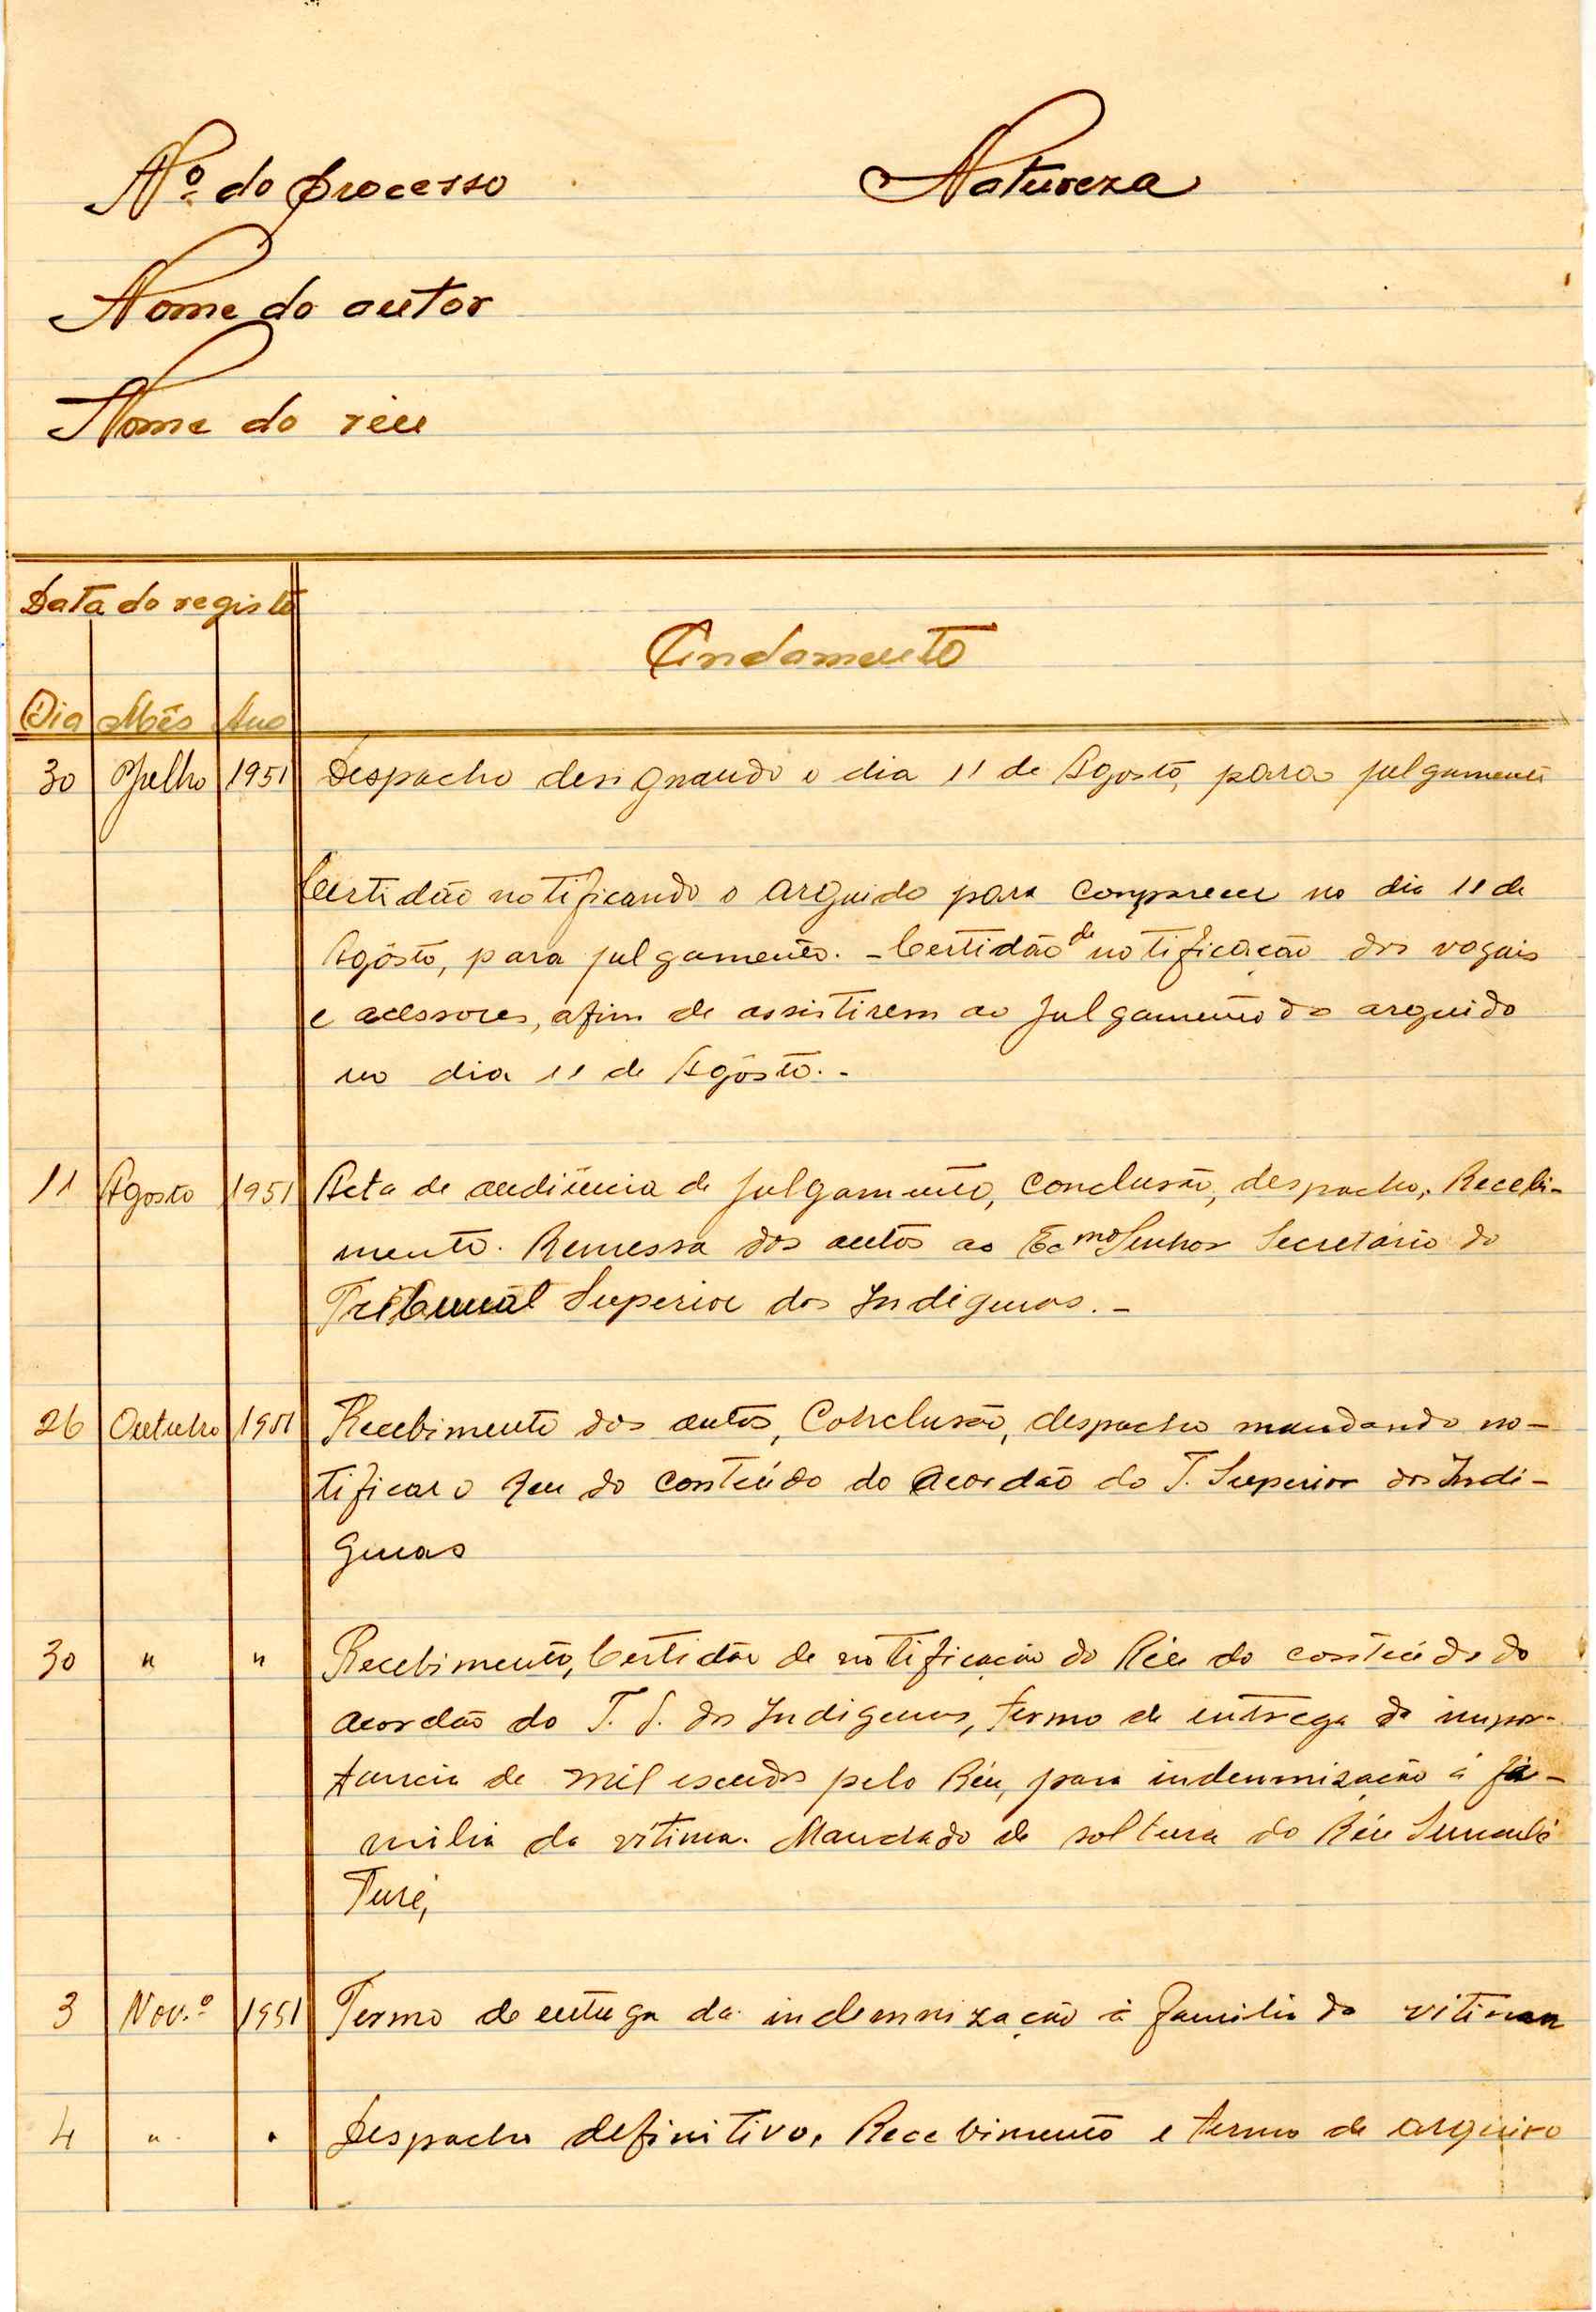 Nº do processo Natureza
Nome do autor
Nome do réu
Data do registo
Andamento
Dia Mês Ano
30 Julho 1951 Despacho designando o dia 11 de Agosto, para julgamento
Certidão notificando o arguido para comparecer no dia 11 de
Agôsto, para julgamento. - Certidão de notificação dos vogais
e acessores, afim de assistirem ao julgamento do arguido
no dia 11 de Agôsto. -
11 Agosto 1951 Acta de audiência de julgamento, conclusão, despacho, Recebi-
mento. Remessa dos autos ao Ecmo Senhor Secretário do
Tribunal Superior dos Indigenas. -
26 Outubro 1951 Recebimento dos autos, Conclusão, despacho mandando no-
tificar o Reu do conteúdo do acordão do T. Superior dos Indi-
genas
30 " " Recebimento, Certidão de notificação do Réu do conteúdo do
acordão do T. S. dos Indigenas, termo de entrega da impor-
tancia de mil escudos pelo Réu, para indemnização á fa-
milia da vitima. Mandado de soltura do Réu
Turé,
3 Nov.º 1951 Termo de entrega da indemnização à familia da vitima
4 " " Despacho definitivo, Recebimento e termo de arquivo